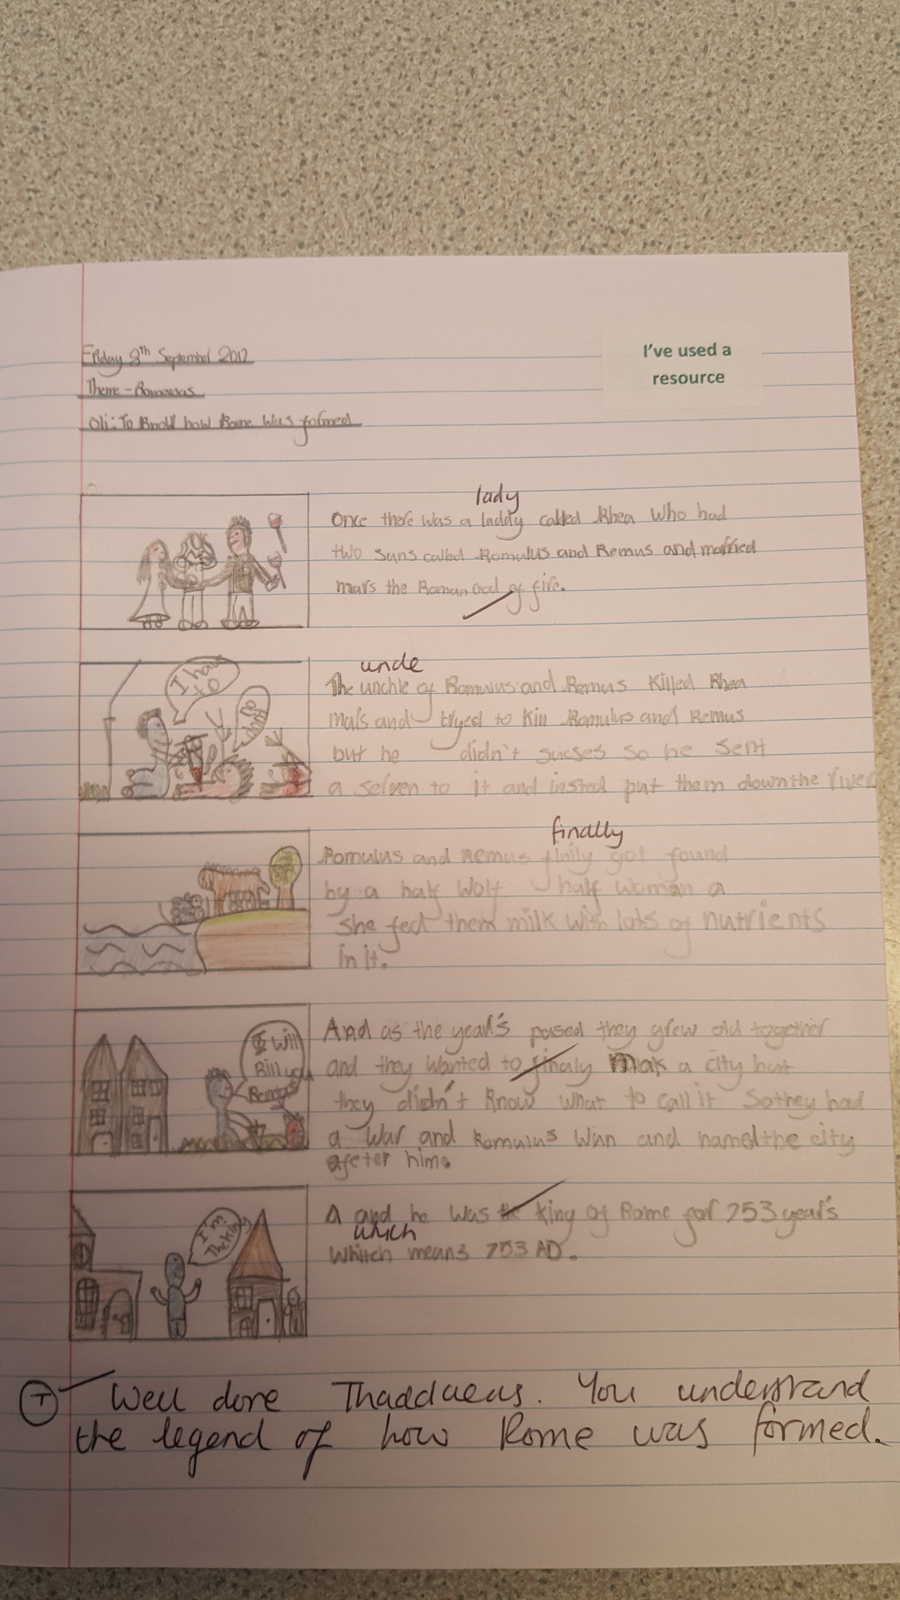 Friday 8th September 2012
Theme - Romans
Oli: To Know how Rome Was formed
I've used a
resource
lady
Once there was a laddy called Rhea Who had
two suns called Romulus and Remus and married
mars the Roman God of fire.
uncle
The unchle of Romulus and Remus Killed Rhea
mars and tryed to Kill Romulus and Remus
but he didn't sucses so he sent
a serven to it and insted put them down the river
I have
to
finally
Romulus and Remus got found
by a half Wolf half woman a
She fed them milk with lots of nutrients
in it.
And as the year's pased they grew old together
and they wanted to finaly mak a city but
they didn't Know what to call it So they had
a War and Romulus Winn and named the city
afeter him.
I will
you
A and he was the king of Rome for 753 year's
which
Whitch means 753 AD.
I'm
The King
T Well done Thaddaeus. You understand
the legend of how Rome was formed.